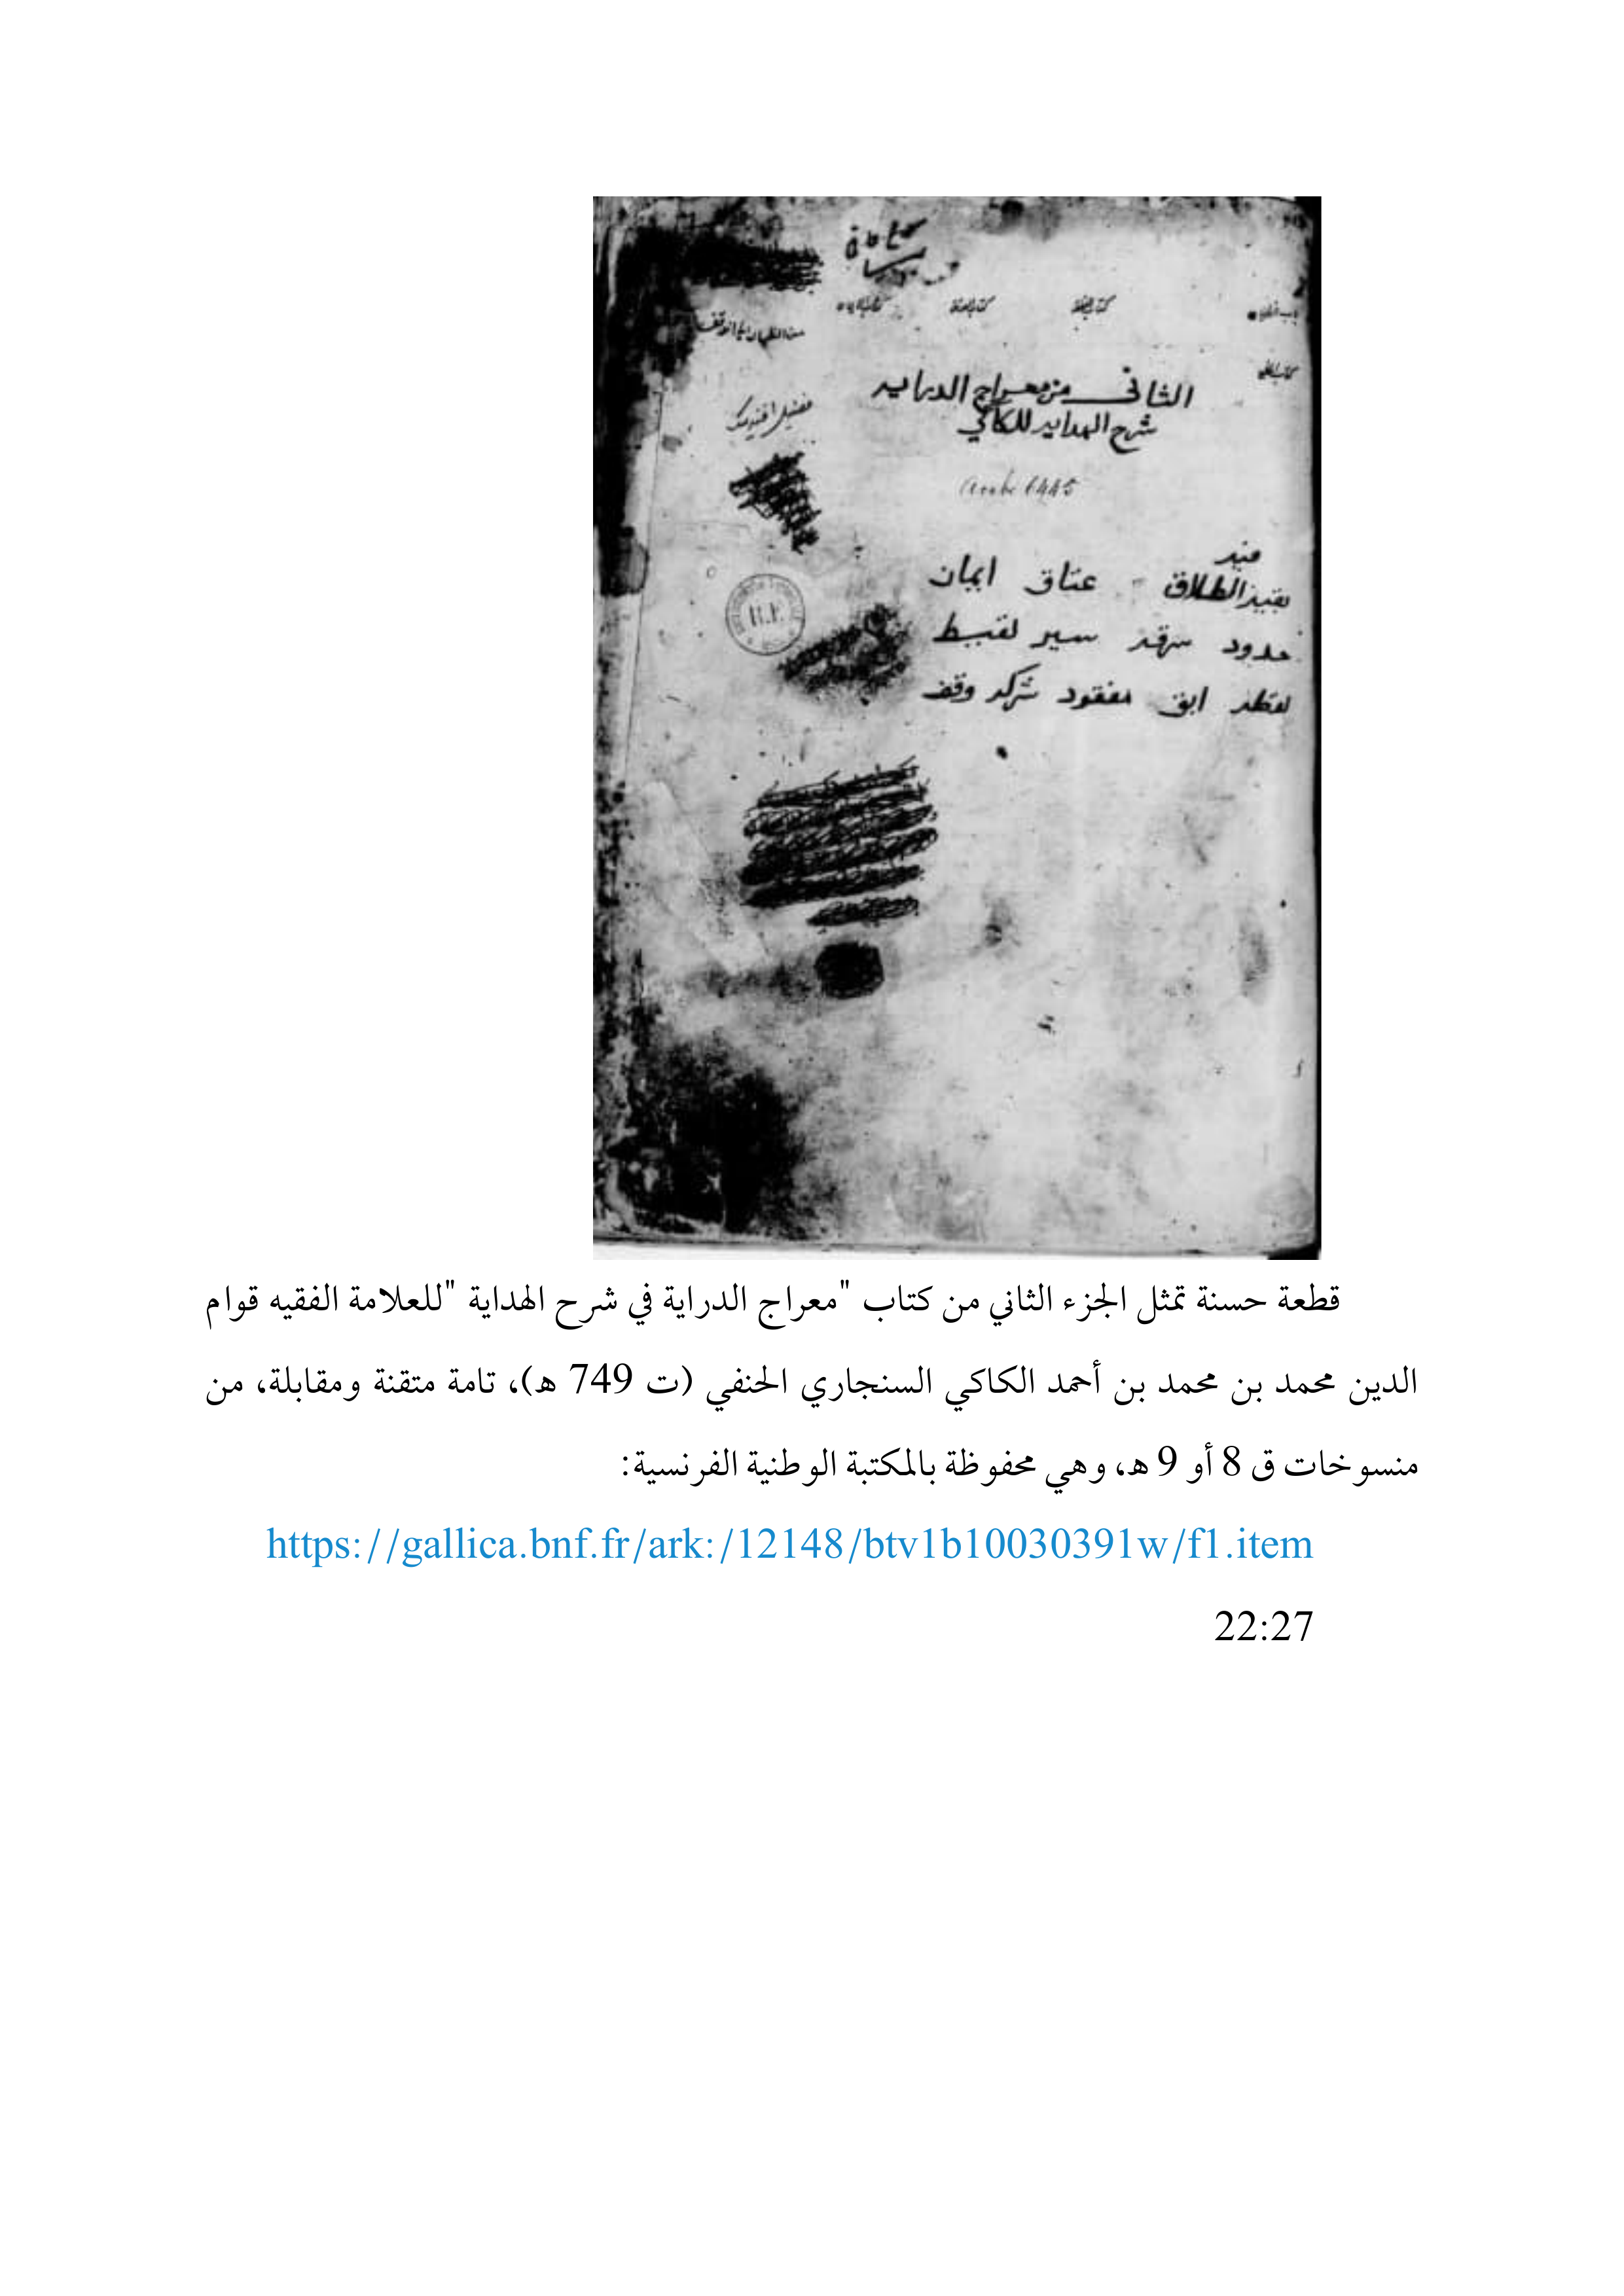 كتاب النفقة
من الظهار الى الوقف
الثانى من معراج الدرايه
شرح الهدايه للكاكي
Arabe 6445
فيه
بقية الطلاق عتاق ايمان
حدود سرقه سير لقيط
لقطه ابق مفقود شركه وقف
قطعة حسنة تمثل الجزء الثاني من كتاب "معراج الدراية في شرح الهداية "للعلامة الفقيه قوام
الدين محمد بن محمد بن أحمد الكاكي السنجاري الحنفي (ت 749 ه)، تامة متقنة ومقابلة، من
منسوخات ق 8 أو 9 ه، وهي محفوظة بالمكتبة الوطنية الفرنسية:
https://gallica.bnf.fr/ark:/12148/btv1b10030391w/f1.item
22:27